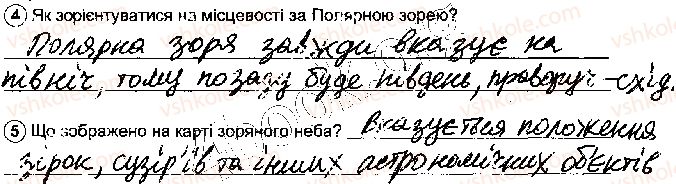 4 Як зорієнтуватися на місцевості за Полярною зорею?
Полярна зоря завжди вказує на
північ, тому позаду буде південь, праворуч - схід.
5 Що зображено на карті зоряного неба? Вказується положення
зірок, сузір'їв та інших астрономічних об'єктів